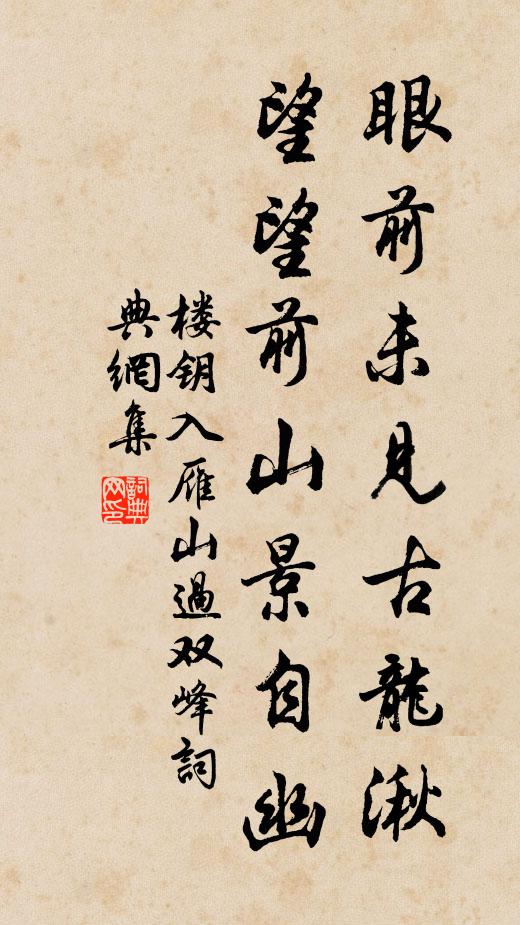 眼前未見古龍湫
望望前山景自幽
楼钥入雁山過双峰詞
典網集
詞典
网印